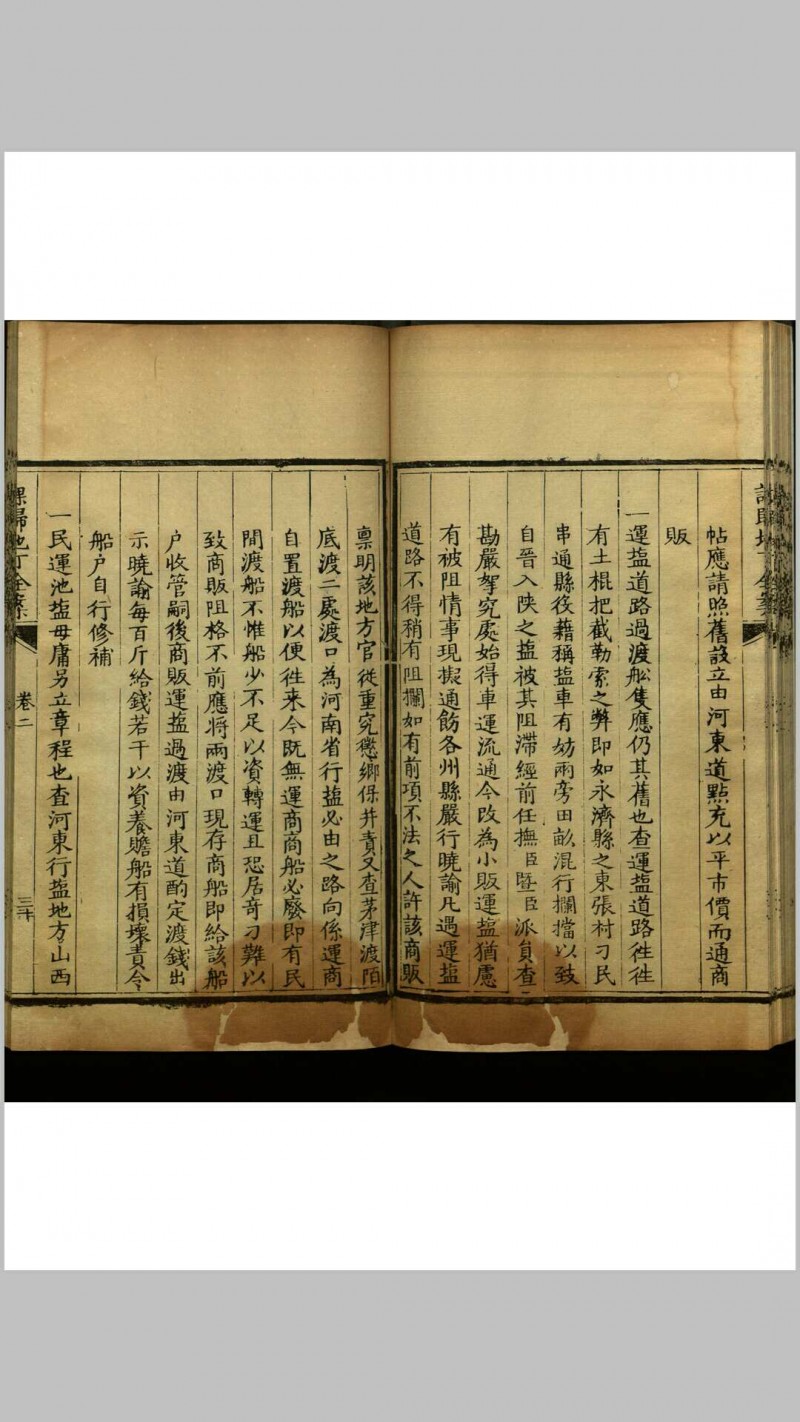 帖應請照舊設立由河東道點充以平市價而通商
販
一運塩道路過渡舩隻應仍其舊也查運塩道路徃徃
有土棍把截勒索之弊即如永濟縣之東張村刁民
串通縣役藉稱塩車有妨兩旁田畝混行攔擋以致
自晉入陝之塩被其阻滯經前任撫臣暨臣派員查
勘嚴拏究處始得車運流通今改為小販運塩猶慮
有被阻情事現擬通飭各州縣嚴行曉諭凡遇運塩
道路不得稍有阻攔如有前項不法之人許該商販
禀明該地方官從重究懲鄉保并責又查茅津渡陌
底渡二處渡口為河南省行塩必由之路向係運商
自置渡船以便徃来今既無運商商船必廢即有民
間渡船不惟船少不足以資轉運且恐居奇刁難以
致商販阻格不前應將兩渡口現存商船即給該船
户收管嗣後商販運塩過渡由河東道酌定渡錢出
示曉諭每百斤給錢若干以資養贍船有損壞責令
船户自行修補
一民運池塩毋庸另立章程也查河東行塩地方山西
課歸地丁全案
卷二
三十